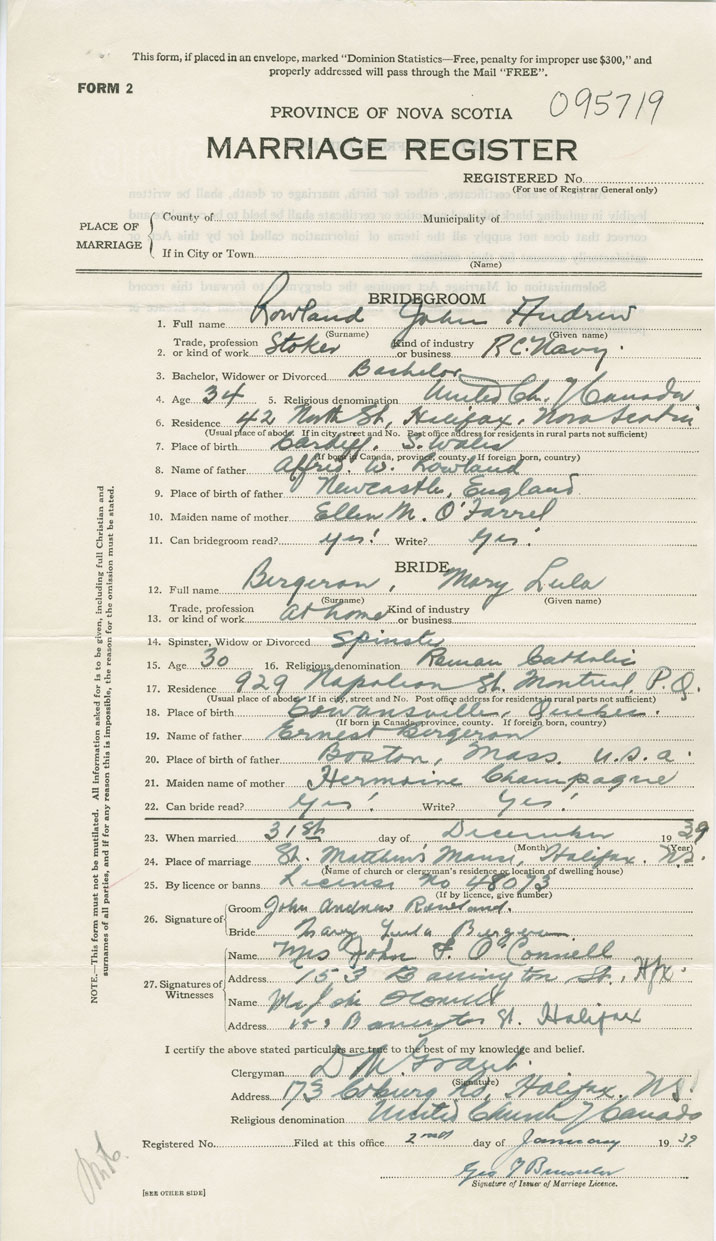 This form, if placed in an envelope, marked "Dominion Statistics—Free, penalty for improper use $300," and
properly addressed will pass through the Mail "FREE".
FORM 2
095719
PROVINCE OF NOVA SCOTIA
MARRIAGE REGISTER
REGISTERED No.
(For use of Registrar General only)
PLACE OF MARRIAGE
County of Municipality of
If in City or Town
(Name)
BRIDEGROOM
1. Full name Rowland John Andrew
(Surname) (Given name)
2. Trade, profession or kind of work Stoker Kind of industry or business R.C. Navy.
3. Bachelor, Widower or Divorced Bachelor
4. Age 34 5. Religious denomination United Ch. of Canada
6. Residence 42 North St, Halifax, Nova Scotia
(Usual place of abode. If in city, street and No. Post office address for residents in rural parts not sufficient)
7. Place of birth Cardiff, S. Wales
(If born in Canada, province, county. If foreign born, country)
8. Name of father Alfred W. Rowland
9. Place of birth of father Newcastle, England
10. Maiden name of mother Ellen M. O'Farrel
11. Can bridegroom read? yes! Write? Yes!
BRIDE
12. Full name Bergeron, Mary Lula
(Surname) (Given name)
13. Trade, profession or kind of work at home Kind of industry or business
14. Spinster, Widow or Divorced Spinster
15. Age 30 16. Religious denomination Roman Catholic
17. Residence 929 Napoleon St. Montreal, P.Q.
(Usual place of abode. If in city, street and No. Post office address for residents in rural parts not sufficient)
18. Place of birth Cowansville, Quebec.
(If born in Canada, province, county. If foreign born, country)
19. Name of father Ernest Bergeron
20. Place of birth of father Boston, Mass. U.S.A.
21. Maiden name of mother Hermaine Champagne
22. Can bride read? Yes! Write? Yes!
23. When married 31st day of December 1939
(Month) (Year)
24. Place of marriage St. Matthew's Manse, Halifax. N.S.
(Name of church or clergyman's residence or location of dwelling house)
25. By licence or banns License No 48073
(If by licence, give number)
26. Signature of
Groom John Andrew Rowland.
Bride Mary Lula Bergeron
27. Signatures of Witnesses
Name Mrs John F. O'Connell
Address 153 Barrington St., Hfx.
Name
Address 153 Barrington St. Halifax
I certify the above stated particulars are true to the best of my knowledge and belief.
Clergyman D M Grant.
(Signature)
Address 173 Coburg Rd, Halifax, N.S.
Religious denomination United Church of Canada
Registered No. Filed at this office 2nd day of January 1939.
Geo
Signature of Issuer of Marriage Licence.
[SEE OTHER SIDE]
NOTE.—This form must not be mutilated. All information asked for is to be given, including full Christian and
surnames of all parties, and if for any reason this is impossible, the reason for the omission must be stated.